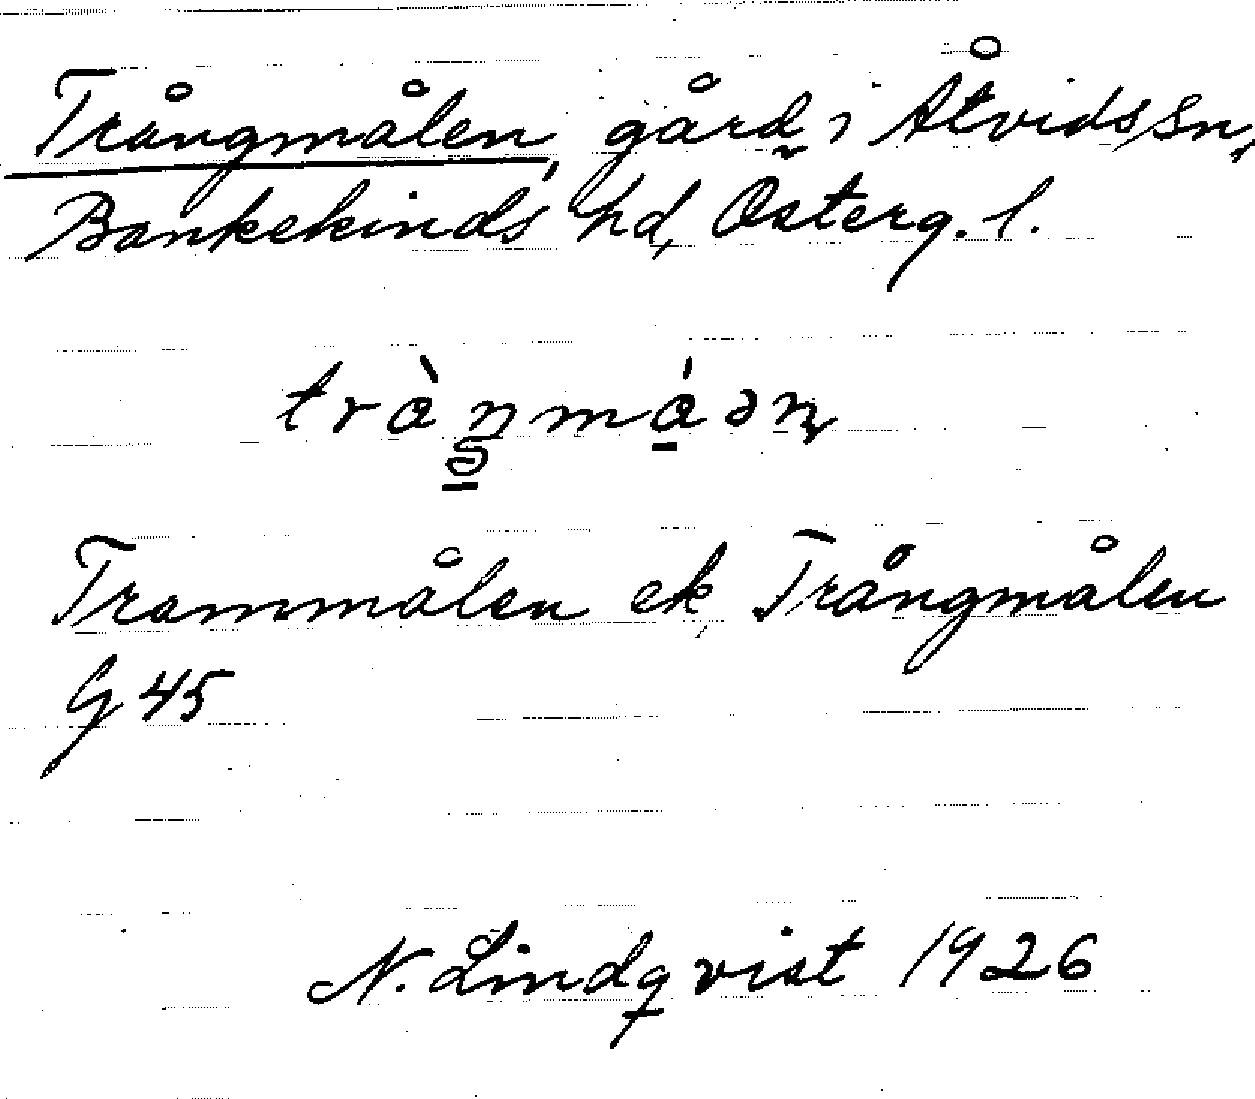 Trångmålen, gård i Åtvids sn,
Bankekinds hd, Österg. l.
trån̠må̠ən
Trammålen ek, Trångmålen
G 45
N. Lindqvist 1926